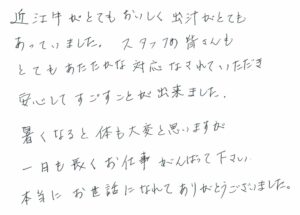 近江牛がとてもおいしく出汁がとても
あっていました。スタッフの皆さんも
とてもあたたかな対応なされていただき
安心してすごすことが出来ました。
暑くなると体も大変と思いますが
一日も長くお仕事がんばって下さい
本当にお世話になれてありがとうございました。